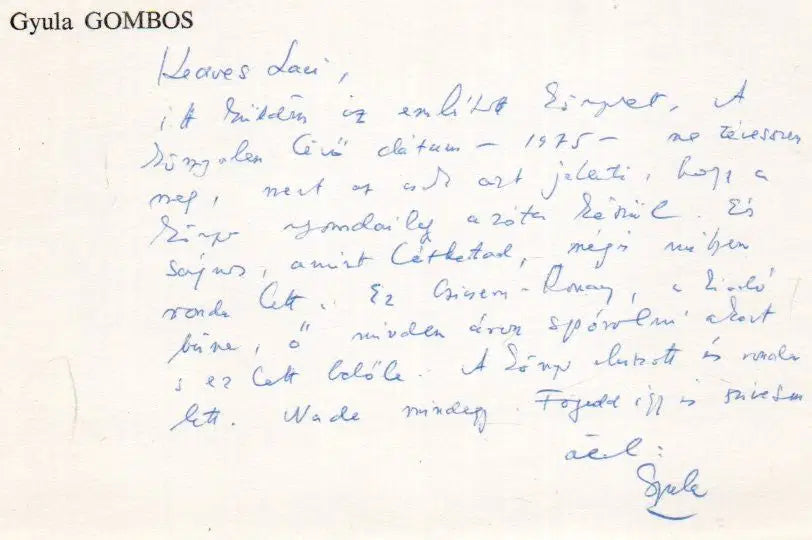 Gyula GOMBOS
Kedves Laci,
itt küldöm az említett könyvet. A
könyvben lévő dátum – 1975 – ne tévesszen
meg, mert az csak azt jelenti, hogy a
könyv nyomdailag azóta készül. És
sajnos, amint láthatod, mégis milyen
ronda lett. Ez Csicsery-Rónay, a kiadó
bűne, ő minden áron spórolni akart
s ez lett belőle. A könyv és ronda
lett. Na de mindegy. Fogadd így is szívesen
Gyula